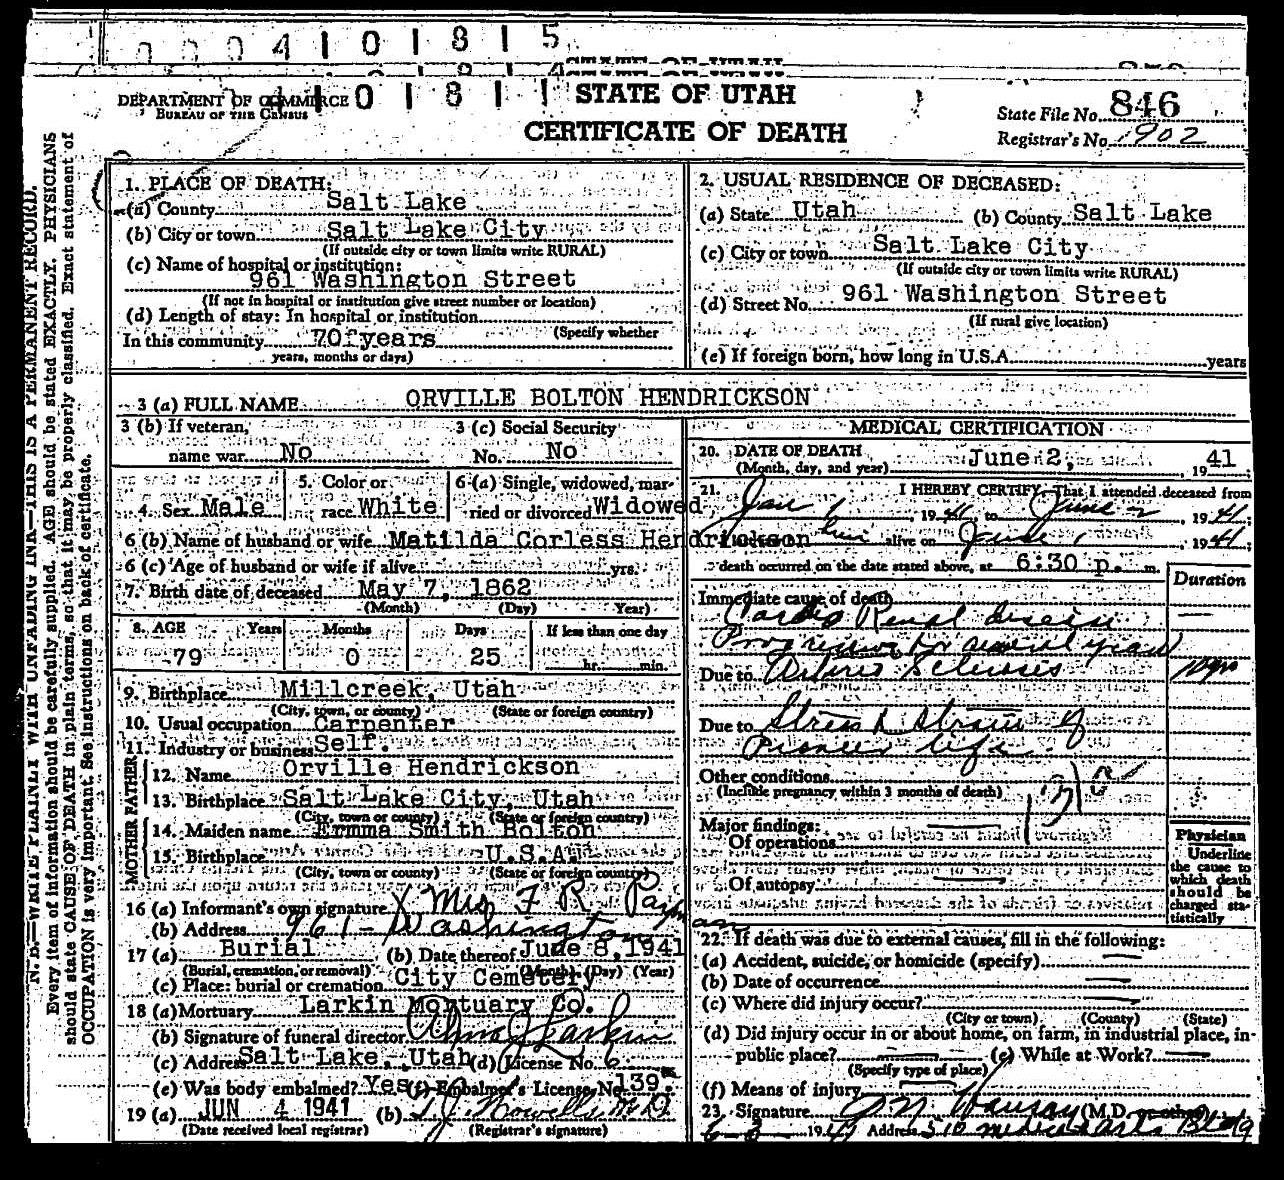 0004101815
STATE OF UTAH
4101811
DEPARTMENT OF COMMERCE
BUREAU OF THE CENSUS
STATE OF UTAH
CERTIFICATE OF DEATH
State File No. 846
Registrar's No. 902
N. B.—WRITE PLAINLY WITH UNFADING INK—THIS IS A PERMANENT RECORD.
Every item of information should be carefully supplied. AGE should be stated EXACTLY. PHYSICIANS
should state CAUSE OF DEATH in plain terms, so that it may be properly classified. Exact statement of
OCCUPATION is very important. See instructions on back of certificate.
1. PLACE OF DEATH:
(a) County Salt Lake
(b) City or town Salt Lake City
(If outside city or town limits write RURAL)
(c) Name of hospital or institution:
961 Washington Street
(If not in hospital or institution give street number or location)
(d) Length of stay: In hospital or institution
(Specify whether
In this community 70 years
years, months or days)
2. USUAL RESIDENCE OF DECEASED:
(a) State Utah (b) County Salt Lake
(c) City or town Salt Lake City
(If outside city or town limits write RURAL)
(d) Street No. 961 Washington Street
(If rural give location)
(e) If foreign born, how long in U.S.A. years
3 (a) FULL NAME ORVILLE BOLTON HENDRICKSON
3 (b) If veteran, name war No
3 (c) Social Security No. No
4. Sex Male
5. Color or race White
6 (a) Single, widowed, married or divorced Widowed
6 (b) Name of husband or wife Matilda Corless Hendrickson
6 (c) Age of husband or wife if alive yrs.
7. Birth date of deceased May 7, 1862
(Month) (Day) Year)
8. AGE Years Months Days If less than one day
79 0 25 hr. min.
9. Birthplace Millcreek, Utah
(City, town, or county) (State or foreign country)
10. Usual occupation Carpenter
11. Industry or business Self.
FATHER
12. Name Orville Hendrickson
13. Birthplace Salt Lake City, Utah
(City, town or county) (State or foreign country)
MOTHER
14. Maiden name Ermma Smith Bolton
15. Birthplace U.S.A.
(City, town or county) (State or foreign country)
16 (a) Informant's own signature Mrs F R
(b) Address 961 - Washington
17 (a) Burial (b) Date thereof June 8, 1941
(Burial, cremation, or removal) (Month) (Day) (Year)
(c) Place: burial or cremation City Cemetery
18 (a) Mortuary Larkin Mortuary Co.
(b) Signature of funeral director Larkin
(c) Address Salt Lake, Utah (d) License No. 6
(e) Was body embalmed? Yes (f) Embalmer's License No. 139.
19 (a) JUN 4 1941 (b)
(Date received local registrar) (Registrar's signature)
MEDICAL CERTIFICATION
20. DATE OF DEATH June 2, 1941
(Month, day, and year)
21. I HEREBY CERTIFY, That I attended deceased from
Jan 1, 1941 to June 2, 1941;
him alive on June 1, 1941;
death occurred on the date stated above, at 6:30 p. m.
Duration
Immediate cause of death
Cardio Renal disease
Progressive for several years
Due to Arterio Sclerosis
Due to Stress & Strain of
Pioneer life.
Other conditions
(Include pregnancy within 3 months of death)
Major findings:
Of operations
Of autopsy
Physician
Underline
the cause to
which death
should be
charged sta-
tistically
22. If death was due to external causes, fill in the following:
(a) Accident, suicide, or homicide (specify)
(b) Date of occurrence
(c) Where did injury occur?
(City or town) (County) (State)
(d) Did injury occur in or about home, on farm, in industrial place, in-
public place? (e) While at Work?
(Specify type of place)
(f) Means of injury
23. Signature (M.D. or other)
6-3 1941 Address 510 Medical Arts Bldg